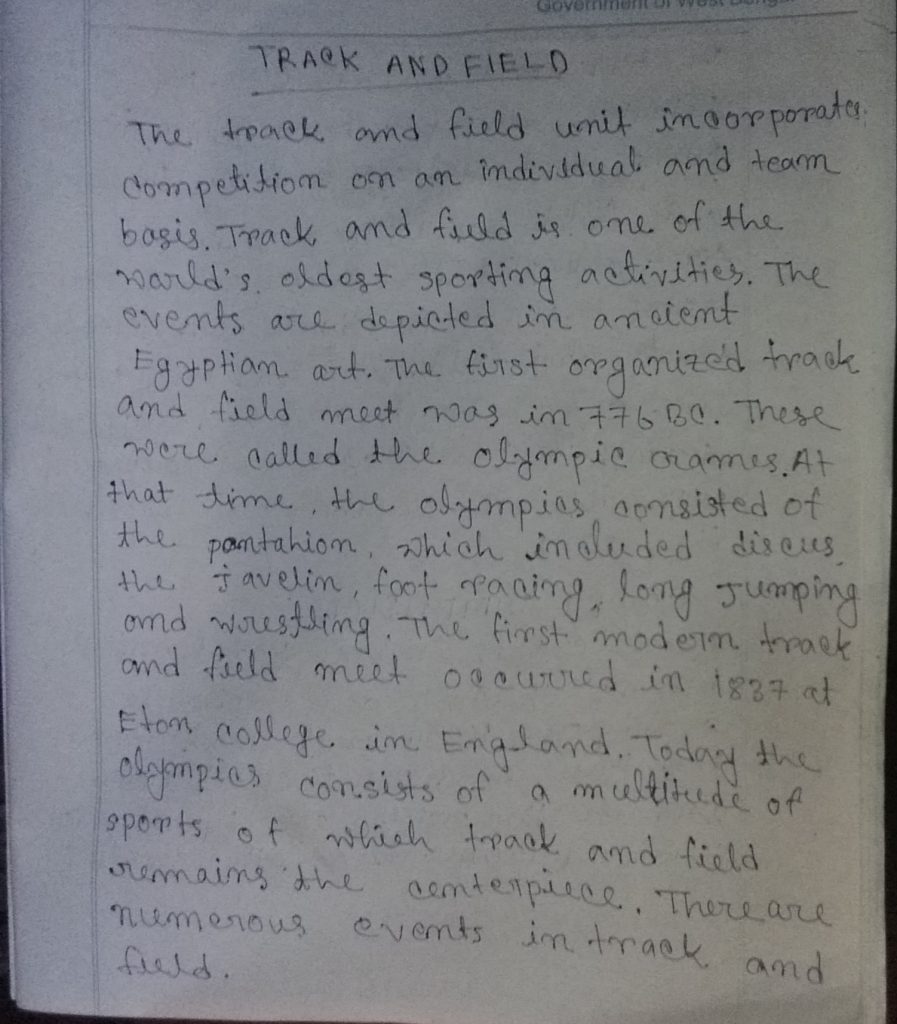 Government of West Bengal
TRACK AND FIELD
The track and field unit incorporates
competition on an individual and team
basis. Track and field is one of the
world's oldest sporting activities. The
events are depicted in ancient
Egyptian art. The first organized track
and field meet was in 776 BC. These
were called the olympic Games. At
that time, the olympics consisted of
the pantahion, which included discus
the javelin, foot racing, long Jumping
and wrestling. The first modern track
and field meet occurred in 1837 at
Eton college in England. Today the
olympics consists of a multitude of
sports of which track and field
remains the centerpiece. There are
numerous events in track and
field.